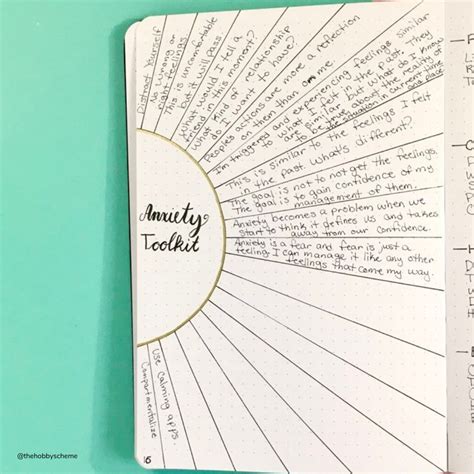 Distract yourself
No wrong or
right feelings
This is uncomfortable
but it will pass
What would I tell a
friend in this moment?
What kind of relationship
do I want to have?
Peoples actions are more a reflection
on them than on me
I'm triggered and experiencing feelings similar
to what I felt in the past. They
are similar but what do I know
to be true about the reality of
the situation in current time
and place
This is similar to the feelings I felt
in the past. What's different?
The goal is not to not get the feelings.
The goal is to gain confidence of my
management of them.
Anxiety becomes a problem when we
start to think it defines us and takes
away from our confidence.
Anxiety is a fear and fear is just a
feeling. I can manage it like any other
feelings that come my way.
Anxiety
Toolkit
Use calming apps.
Compartmentalize
@thehobbyscheme